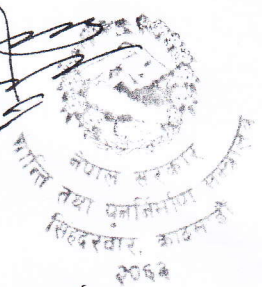 नेपाल सरकार
शान्ति तथा पुनर्निर्माण मन्त्रालय
सिंहदरवार, काठमाडौं
२०६३